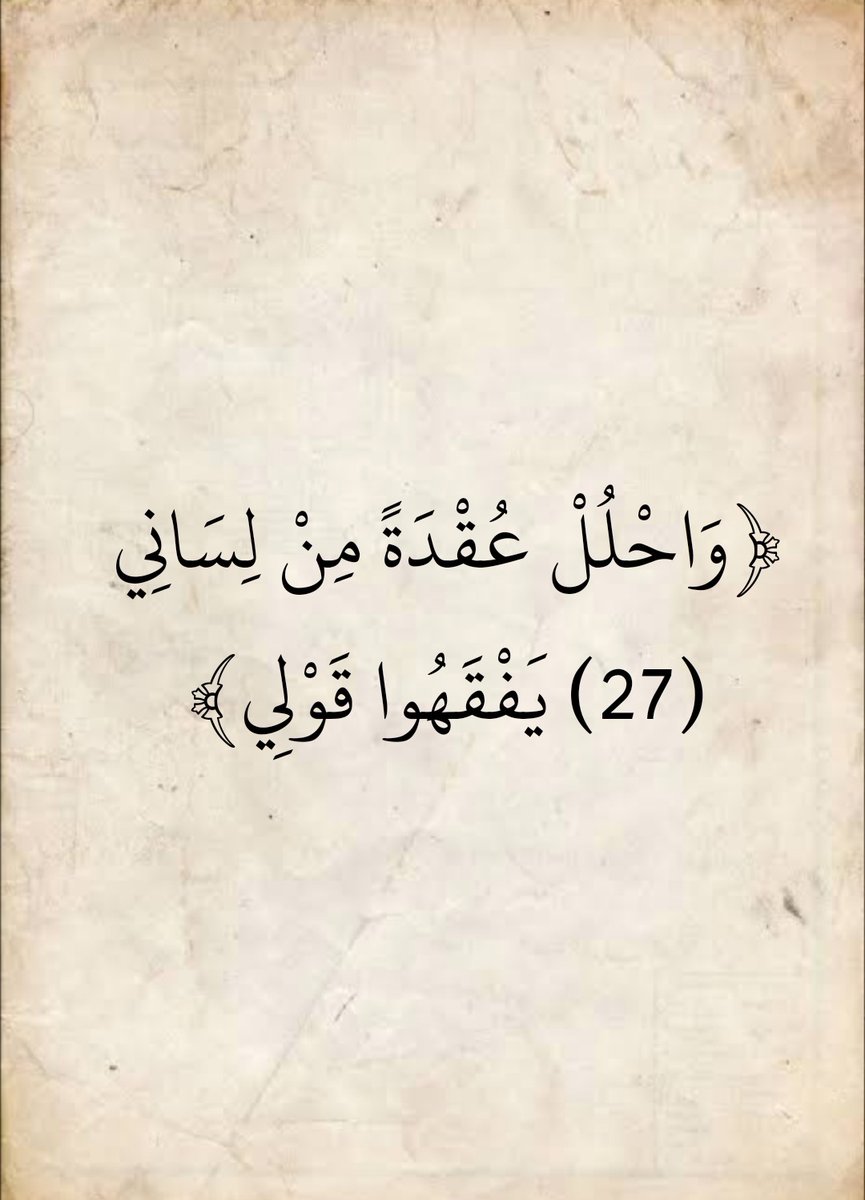 ﴿وَاحْلُلْ عُقْدَةً مِنْ لِسَانِي
(27) يَفْقَهُوا قَوْلِي﴾